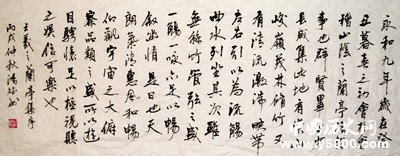 永和九年歲在癸
丑暮春之初會于會
稽山陰之蘭亭
事也群賢畢
峻嶺茂林脩竹又
有清流激湍映帶
左右引以為流觴
曲水列坐其次雖
無絲竹管弦之盛
一觴一詠亦足以暢
敘幽情是日也天
朗氣清惠風和暢
仰觀宇宙之大俯
察品類之盛所以遊
目騁懷足以極視聽
之娛信可樂也
王羲之蘭亭集序
丙戌仲秋